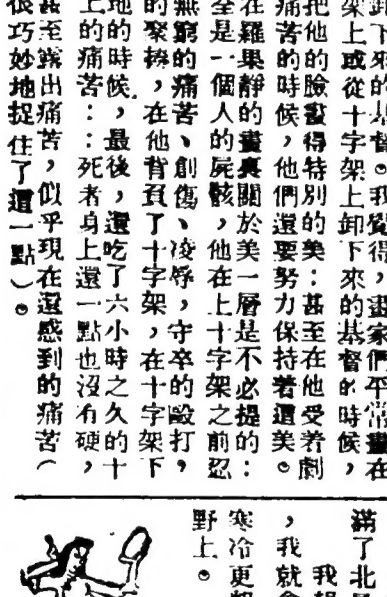 卸下來的基督。我覺得，畫家們平常畫在
架上或從十字架上卸下來的基督的時候，
把他的臉畫得特別的美：甚至在他受着劇
痛苦的時候，他們還要努力保持着這美。
在羅果靜的畫裏關於美一層是不必提的：
全是一個人的屍骸，他在上十字架之前忍
無窮的痛苦、創傷、凌辱，守卒的毆打，
的聚，在他背負了十字架，在十字架下
地的時候，最後，還吃了六小時之久的十
上的痛苦：：死者身上還一點也沒有硬，
甚至露出痛苦，似乎現在還感到的痛苦（
很巧妙地捉住了這一點）。
滿了北
我
，我就
寒冷更
野上。